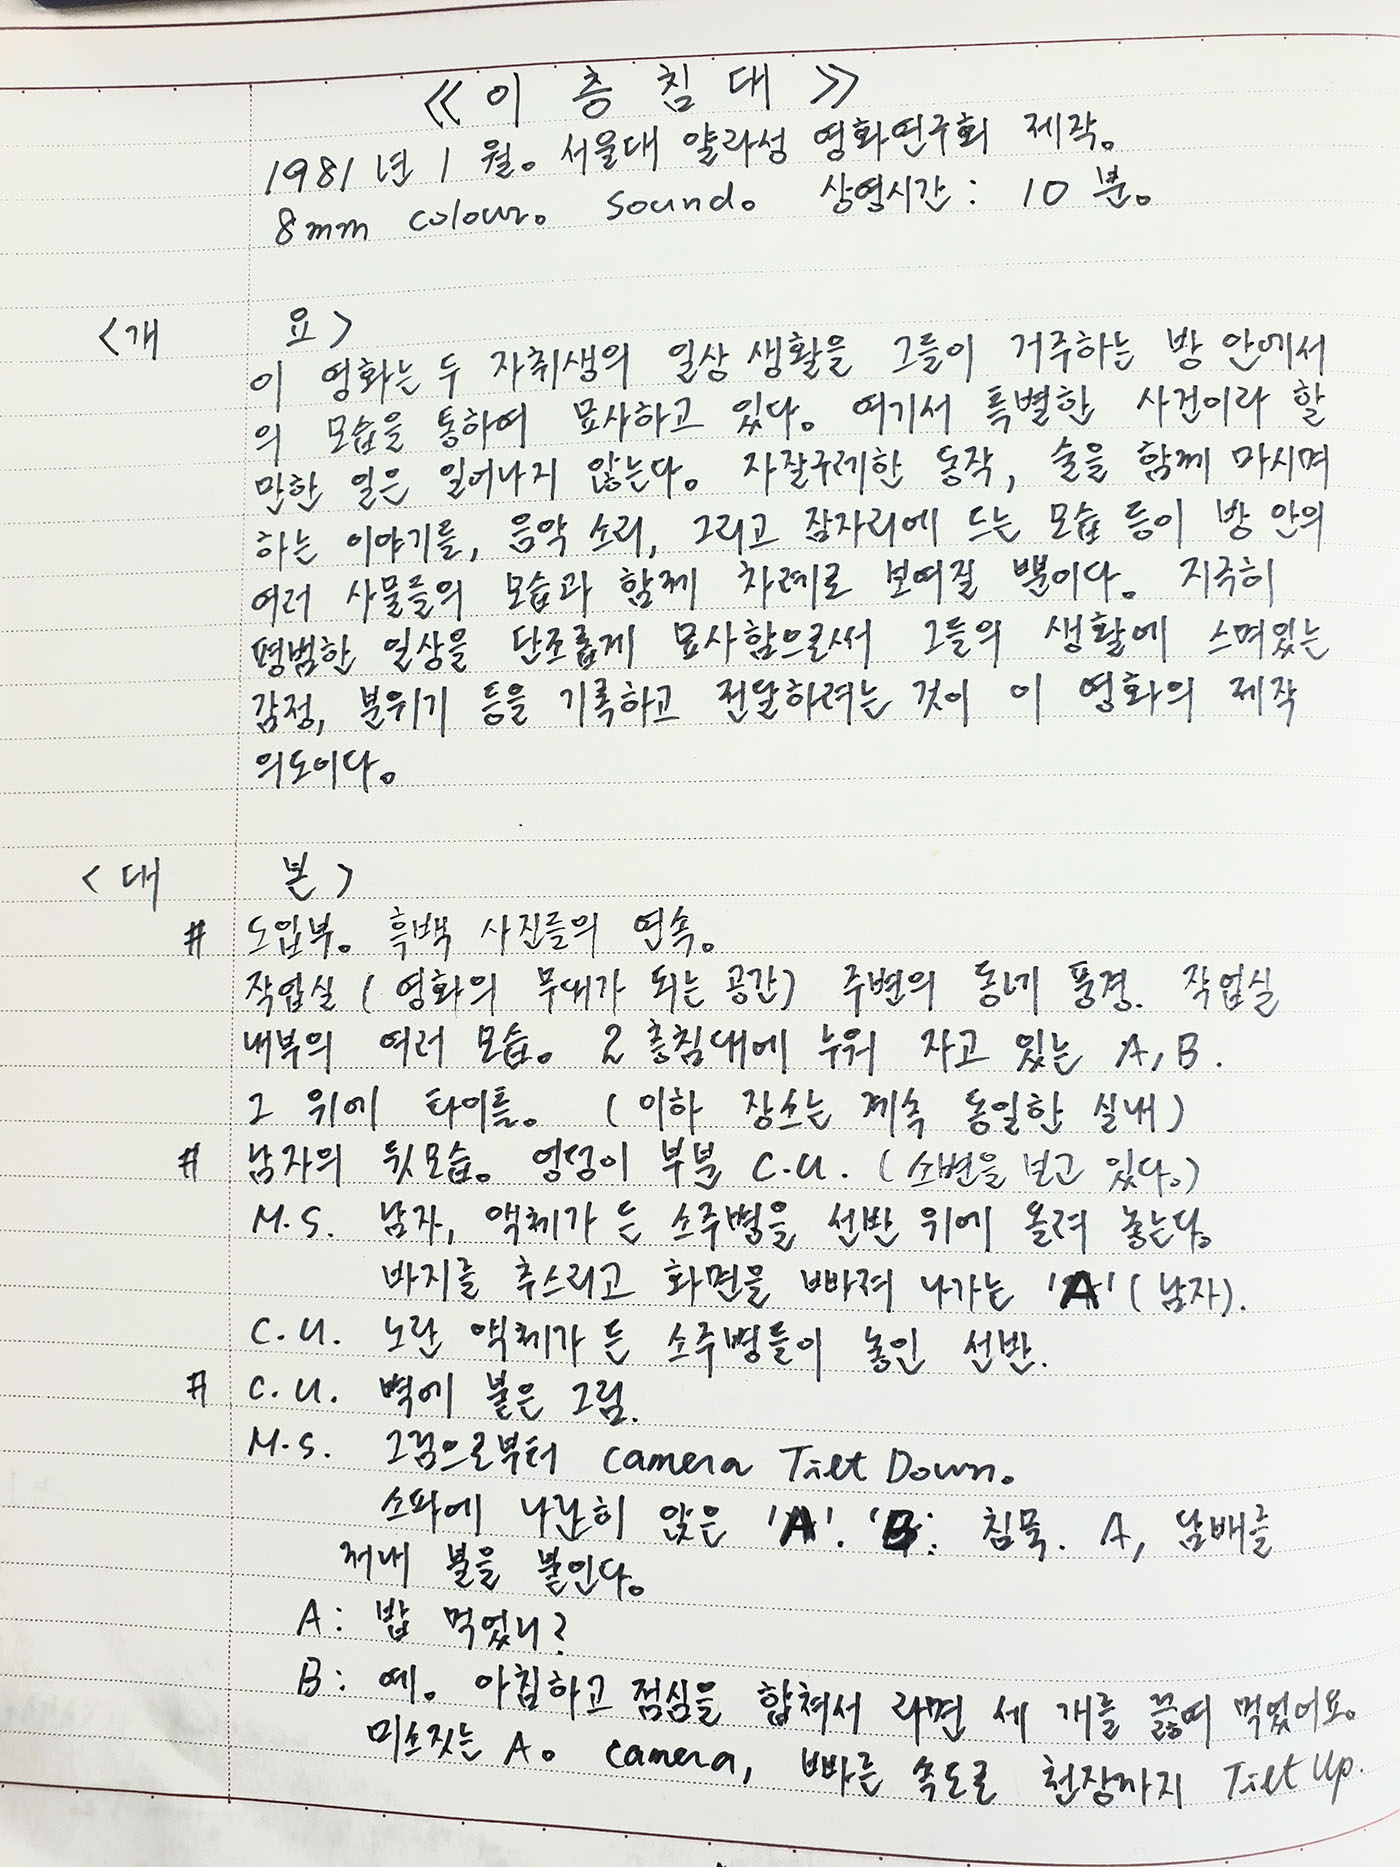 《이 층 침 대》
1981년 1월。 서울대 얄라성 영화연구회 제작。
8mm colour。 sound。 상영시간 : 10분。
<개 요>
이 영화는 두 자취생의 일상 생활을 그들이 거주하는 방 안에서
의 모습을 통하여 묘사하고 있다。 여기서 특별한 사건이라 할
만한 일은 일어나지 않는다。 자잘구레한 동작, 술을 함께 마시며
하는 이야기를, 음악 소리, 그리고 잠자리에 드는 모습 등이 방 안의
여러 사물들의 모습과 함께 차례로 보여질 뿐이다。 지극히
평범한 일상을 단조롭게 묘사함으로써 그들의 생활에 스며있는
감정, 분위기 등을 기록하고 전달하려는 것이 이 영화의 제작
의도이다。
<대 본>
# 도입부。 흑백 사진들의 연속。
작업실 (영화의 무대가 되는 공간) 주변의 동네 풍경. 작업실
내부의 여러 모습。 2층침대에 누워 자고 있는 A, B.
그 위에 타이틀。 (이하 장소는 계속 동일한 실내)
# 남자의 뒷모습。 엉덩이 부분 C.U. (소변을 보고 있다。)
M.S. 남자, 액체가 든 소주병을 선반 위에 올려 놓는다。
바지를 추스리고 화면을 빠져 나가는 'A' (남자).
C.U. 노란 액체가 든 소주병들이 놓인 선반.
# C.U. 벽에 붙은 그림.
M.S. 그림으로부터 camera Tilt Down。
소파에 나란히 앉은 'A'. 'B'. 침묵. A, 담배를
꺼내 불을 붙인다。
A: 밥 먹었니?
B: 예。 아침하고 점심을 합쳐서 라면 세 개를 끓여 먹었어요。
미소짓는 A。 camera, 빠른 속도로 천장까지 Tilt Up.